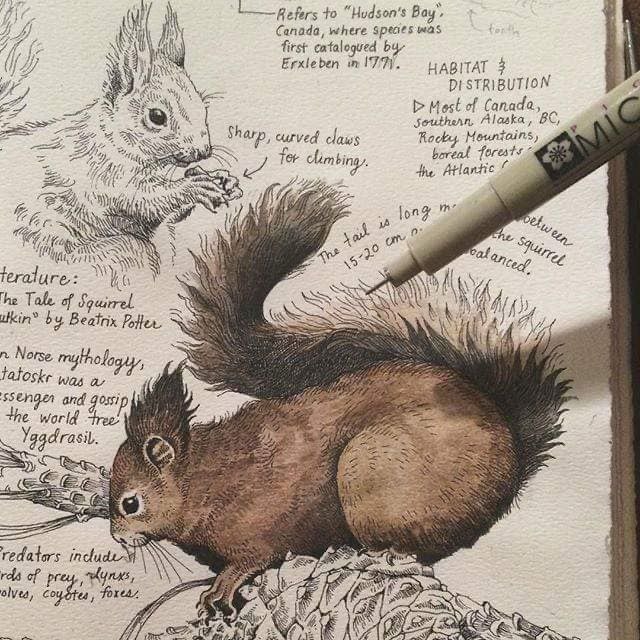 Refers to "Hudson's Bay",
Canada, where species was
first catalogued by
Erxleben in 1771.
tooth
HABITAT &
DISTRIBUTION
▷ Most of Canada,
southern Alaska, BC,
Rocky Mountains,
boreal forests
the Atlantic
MIC
Sharp, curved claws
for climbing.
The tail is long between
15-20 cm the squirrel
balanced.
terature:
The Tale of Squirrel
utkin" by Beatrix Potter
n Norse mythology,
tatoskr was a
essenger and gossip
the world tree
Yggdrasil.
Predators include
rds of prey, lynxs,
olves, coyotes, foxes.